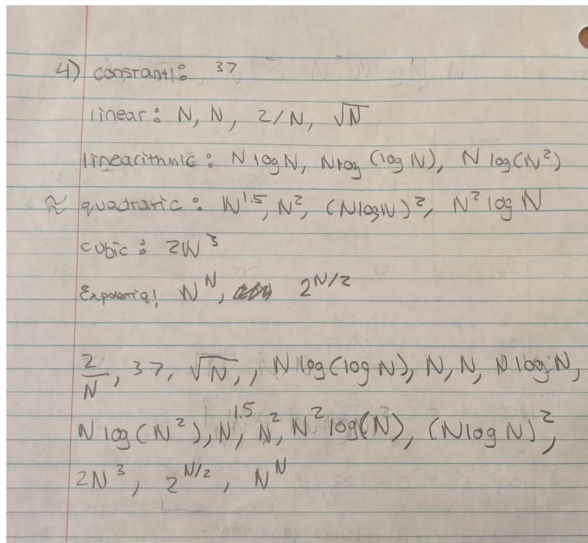 4) constant: 37
linear: N, N, 2/N, √N
linearithmic: N log N, N log (log N), N log(N²)
≈ quadratic: N^1.5, N², (N log N)², N² log N
cubic: 2N³
N^N, 2^(N/2)
2/N, 37, √N, , N log(log N), N, N, N log N,
N log(N²), N^1.5, N², N² log(N), (N log N)²,
2N³, 2^(N/2), N^N